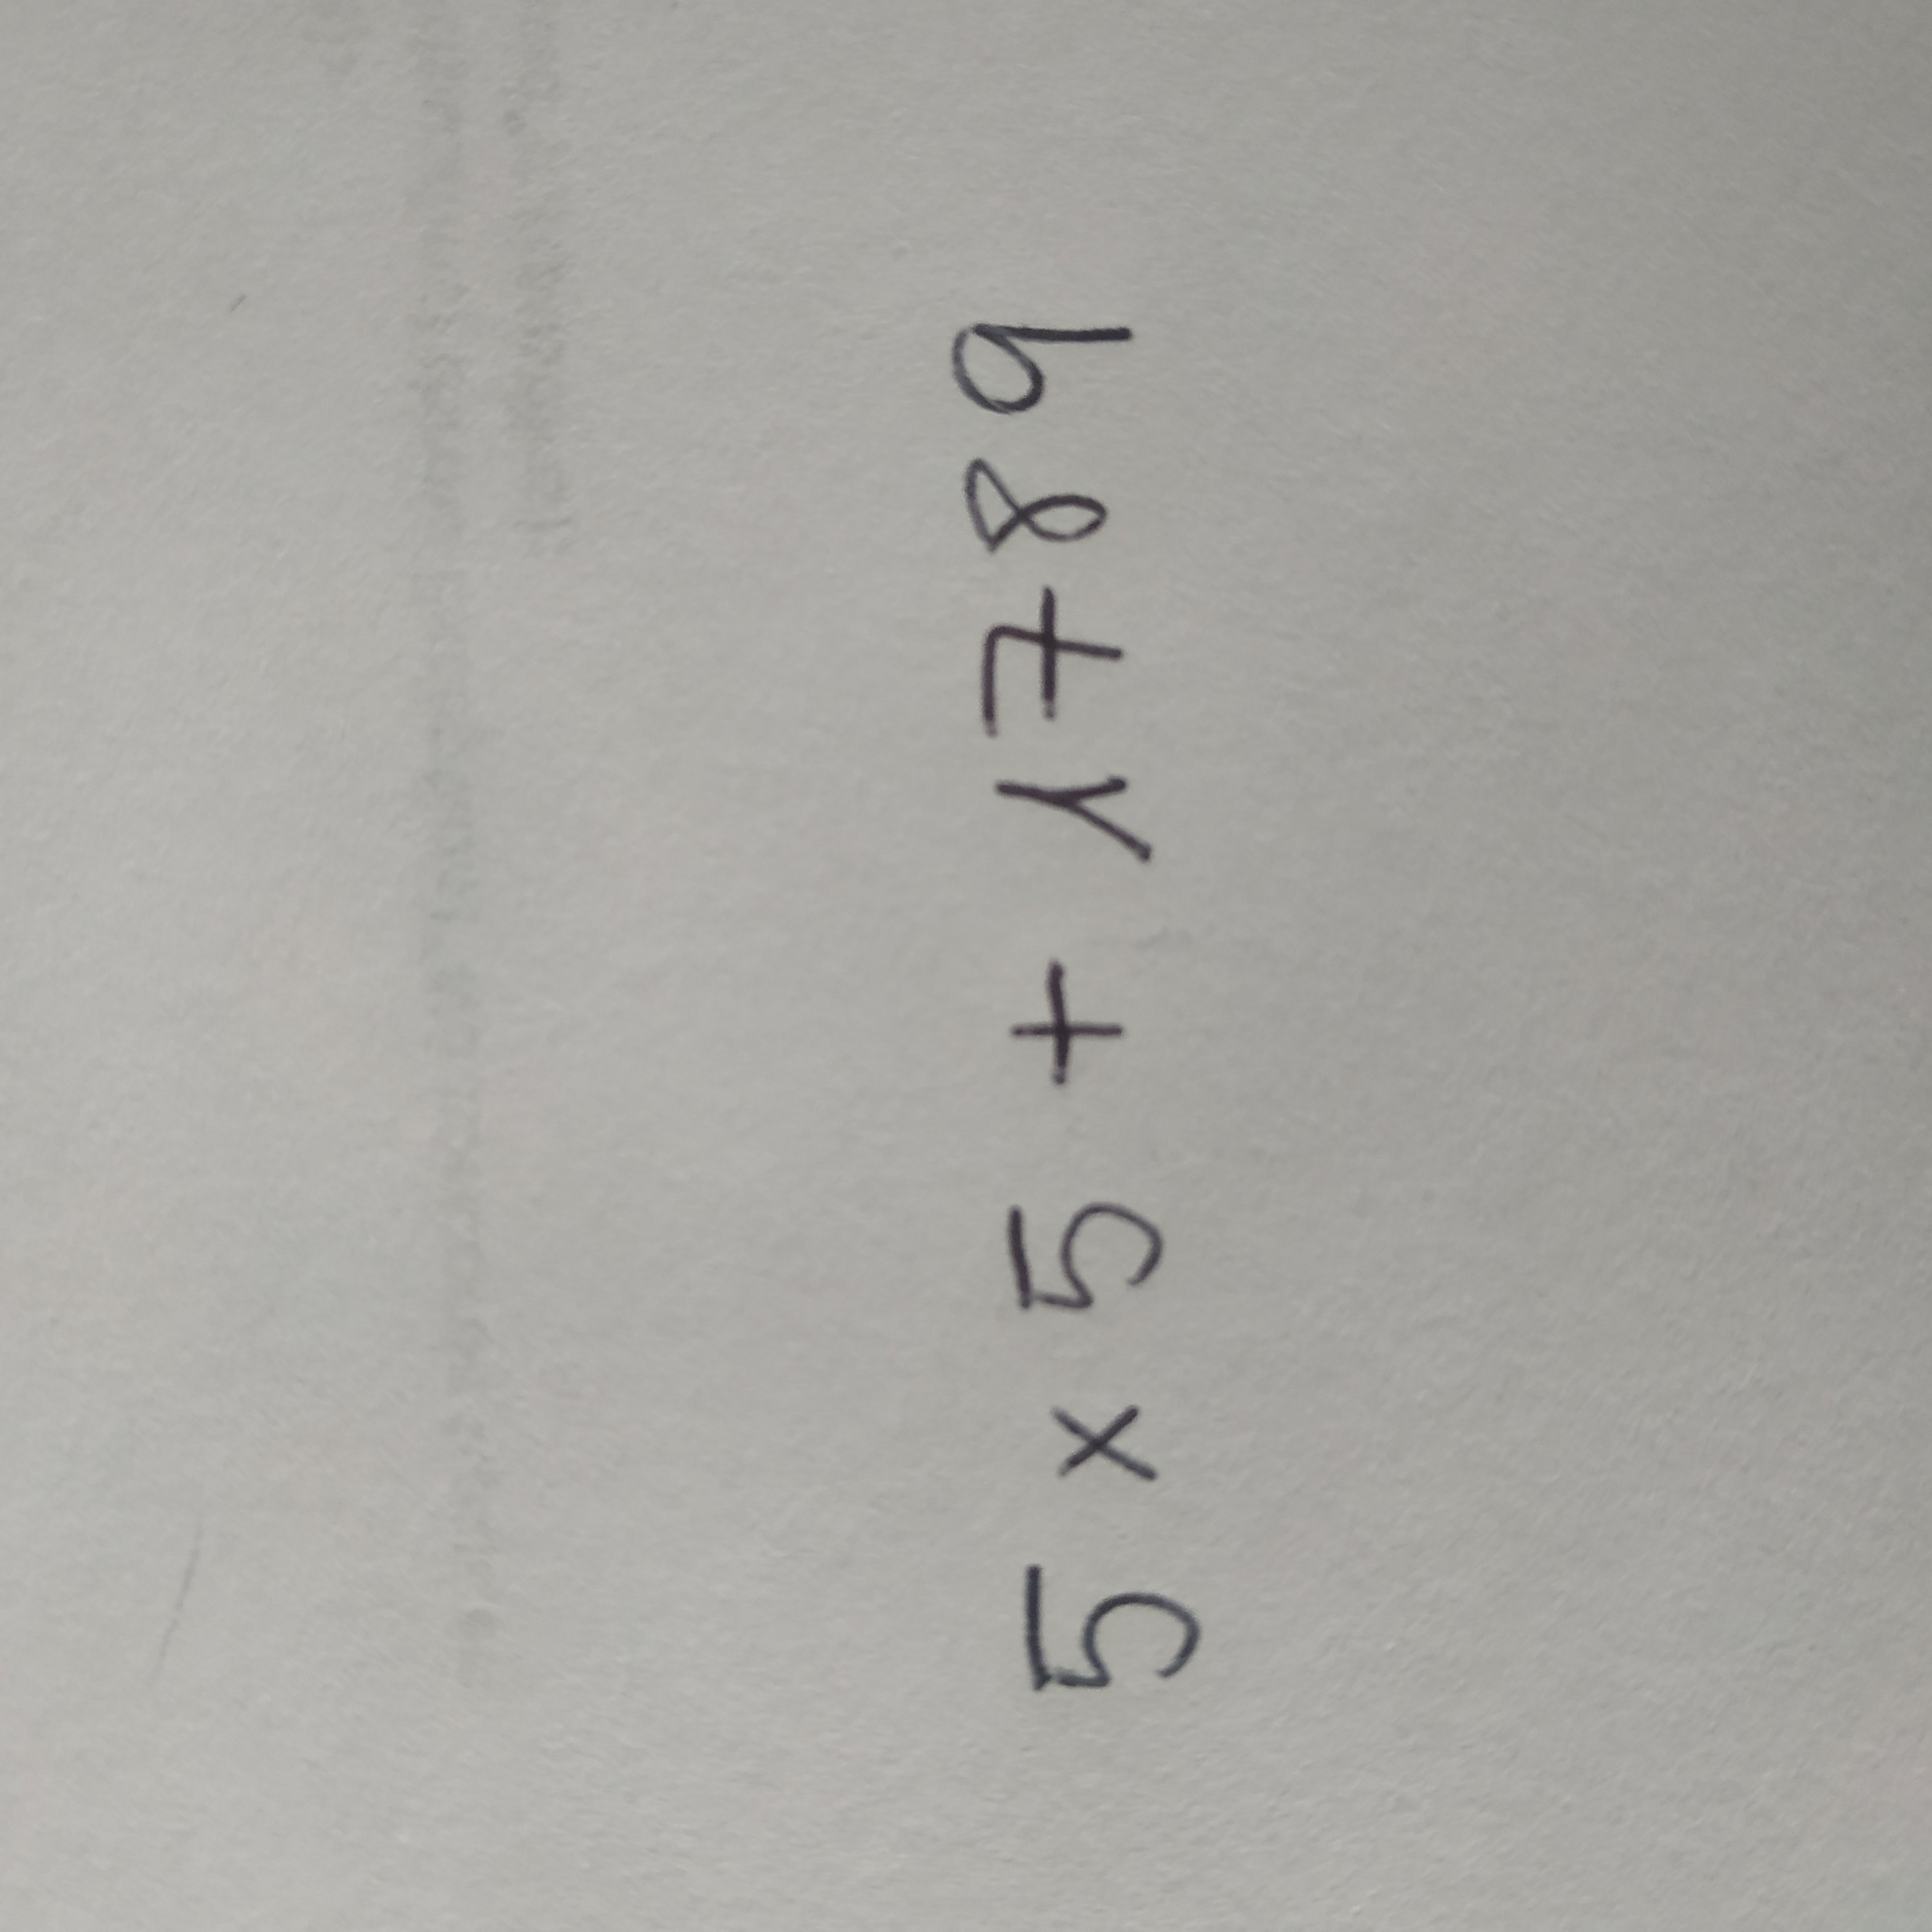 5 x 5 + 1789